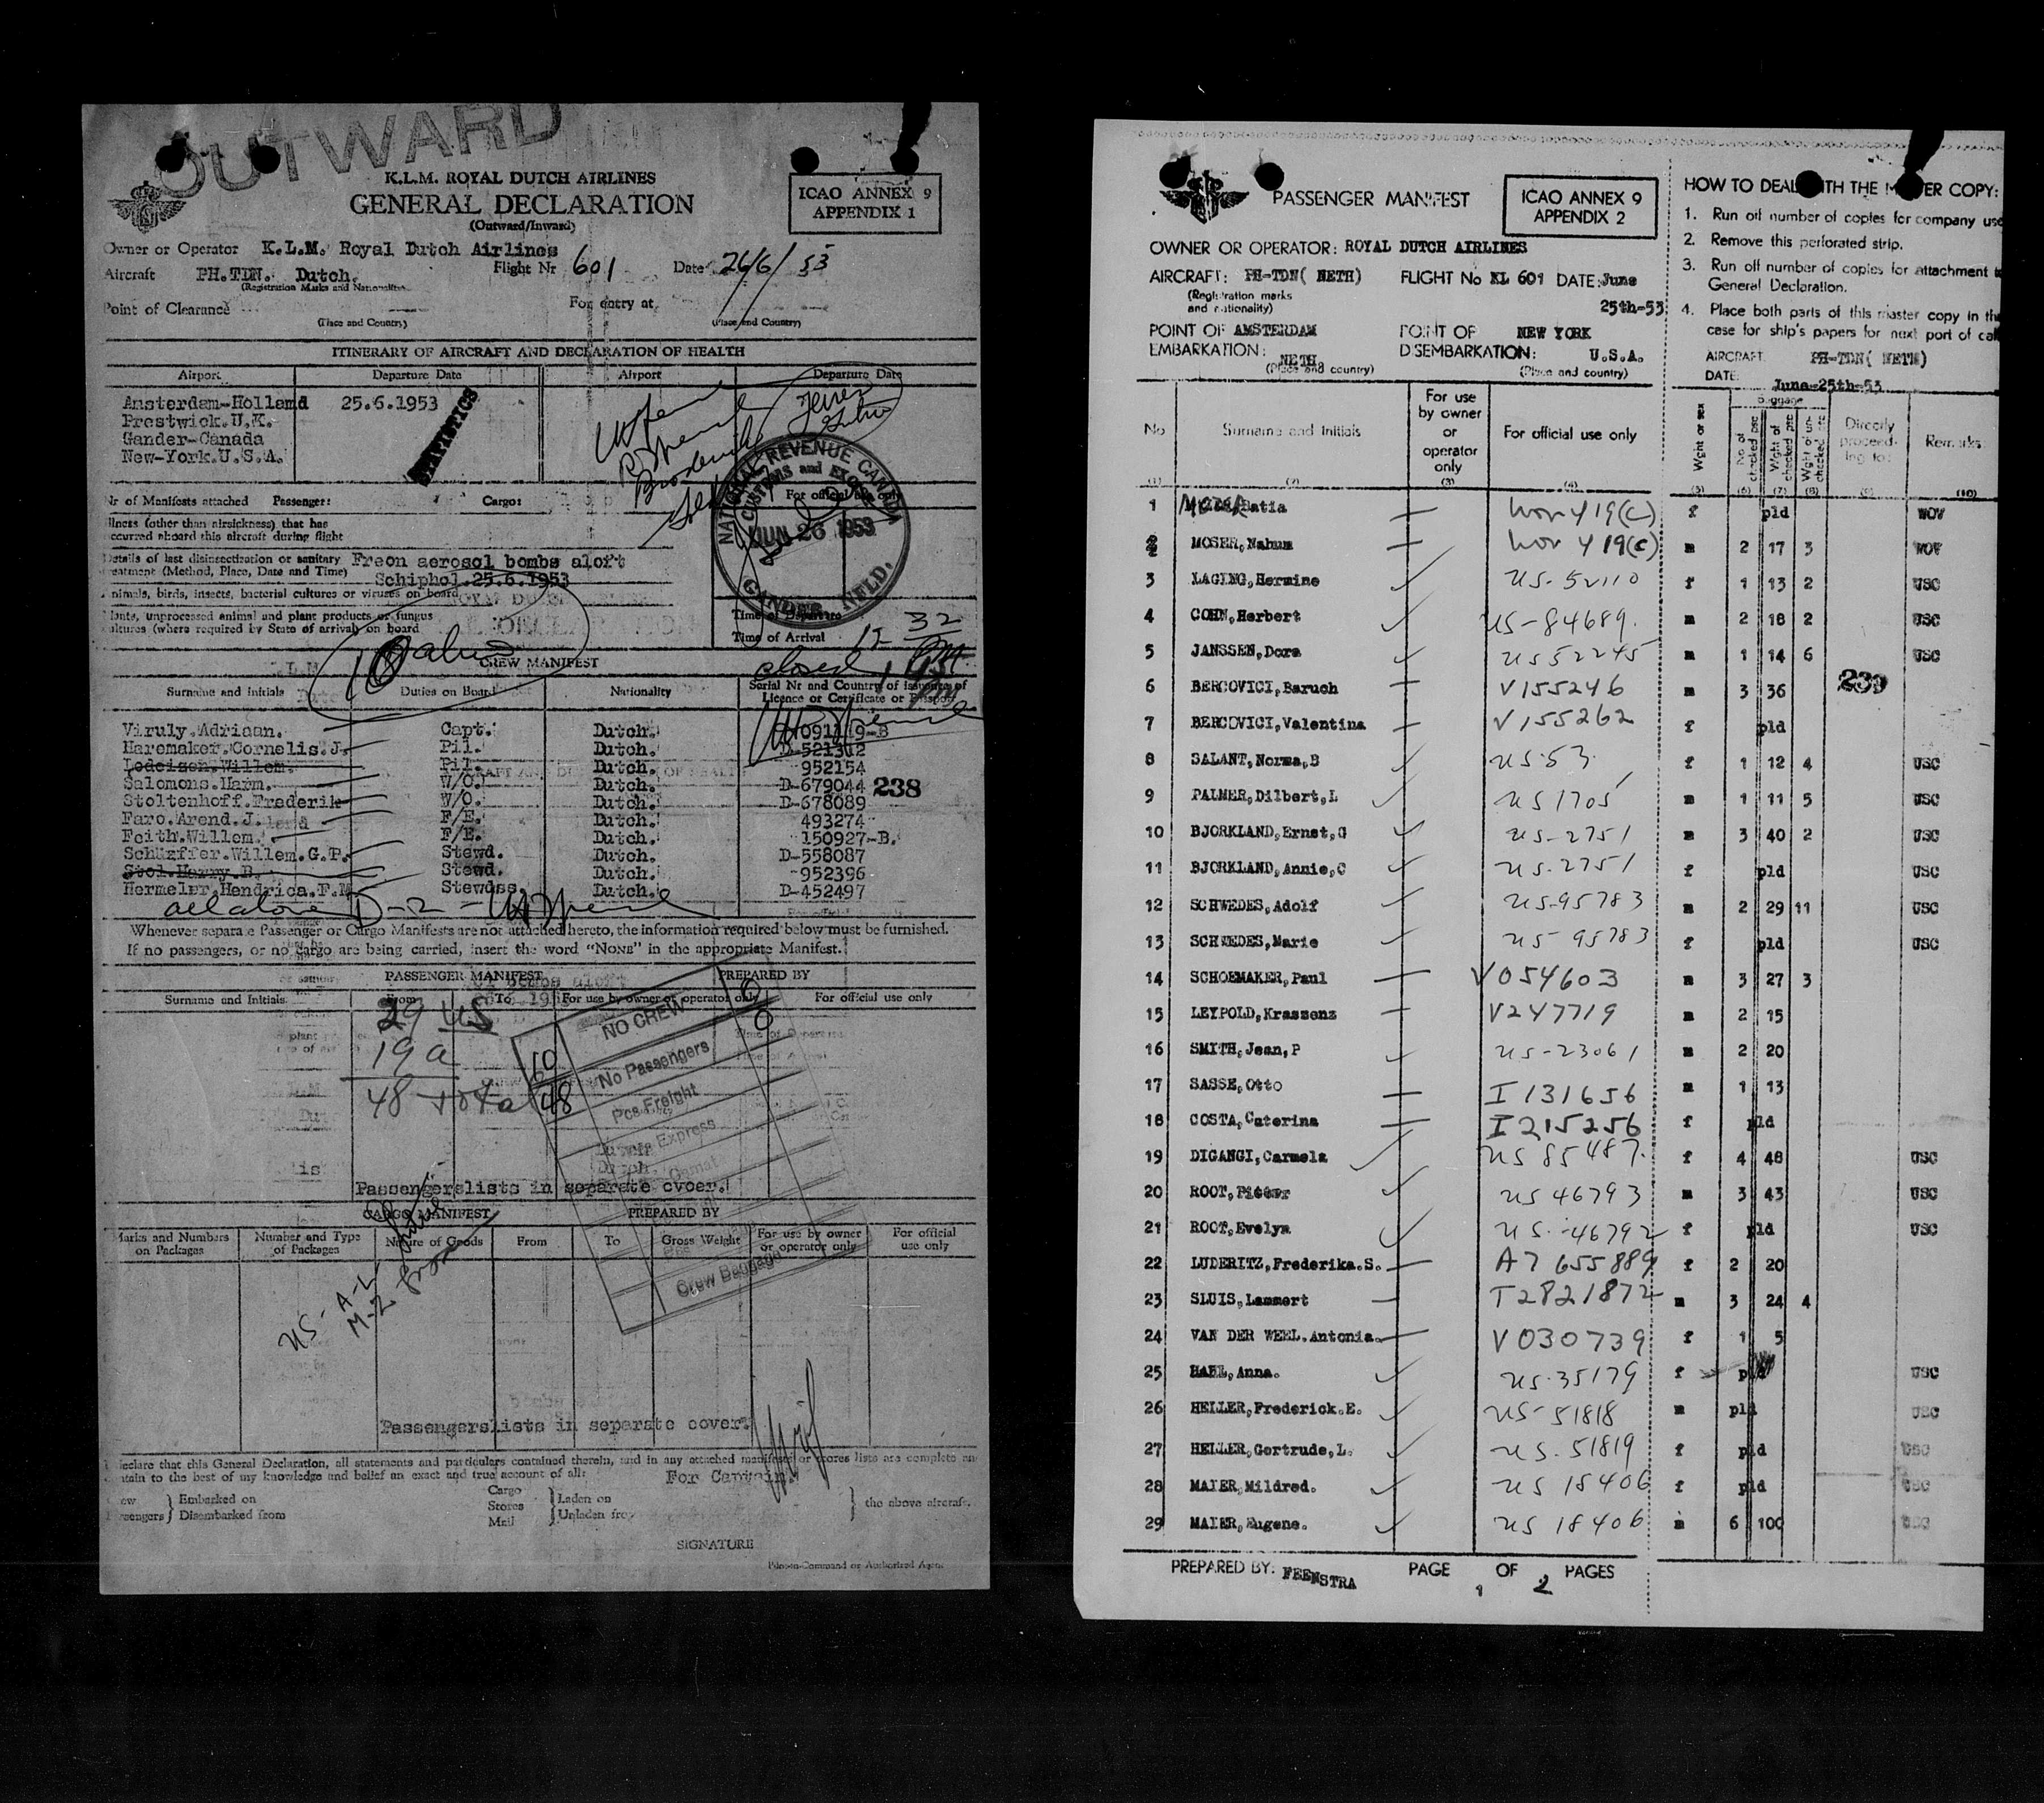 OUTWARD
K.L.M. ROYAL DUTCH AIRLINES
GENERAL DECLARATION
(Outward/Inward)
ICAO ANNEX 9
APPENDIX 1
Owner or Operator K.L.M. Royal Dutch Airlines
Aircraft PH.TDN. Dutch. Flight Nr 601 Date 26/6/53
(Registration Marks and Nationality
Point of Clearance For entry at
(Place and Country) (Place and Country)
ITINERARY OF AIRCRAFT AND DECLARATION OF HEALTH
Airport Departure Date Airport Departure Date
Amsterdam-Holland 25.6.1953
Prestwick.U.K.
Gander-Canada
New-York.U.S.A.
STATISTICS
NATIONAL REVENUE CANADA
CUSTOMS and EXCISE
JUN 26 1953
GANDER NFLD.
Nr of Manifests attached Passenger: Cargo: For official use only
illness (other than airsickness) that has
occurred aboard this aircraft during flight
Details of last disinsectization or sanitary Freon aerosol bombs aloft
treatment (Method, Place, Date and Time) Schiphol.25.6.1953
Animals, birds, insects, bacterial cultures or viruses on board
Plants, unprocessed animal and plant products or fungus
cultures (where required by State of arrival) on board
Time of Departure
Time of Arrival
CREW MANIFEST closed
Surname and Initials Duties on Board Nationality Serial Nr and Country of issuance of
Licence or Certificate or Passport
Viruly.Adriaan. Capt. Dutch. 091119-B
Haremaker.Cornelis.J. Pil. Dutch. D-521312
Lodeizen.Willem. Pil. Dutch. 952154
Salomons.Harm. W/O. Dutch. D-679044 238
Stoltenhoff.Frederik W/O. Dutch. D-678089
Faro.Arend.J. F/E. Dutch. 493274
Feith.Willem. F/E. Dutch. 150927-B.
Schüffer.Willem.G.P. Stewd. Dutch. D-558087
Stol.Harry.B. Stewd. Dutch. 952396
Hermeler.Hendrica.F.M Stewdss. Dutch. D-452497
all above D-2
Whenever separate Passenger or Cargo Manifests are not attached hereto, the information required below must be furnished.
If no passengers, or no cargo are being carried, insert the word “NONE” in the appropriate Manifest.
PASSENGER MANIFEST PREPARED BY
Surname and Initials From To For use by owner or operator only For official use only
29 US
19 a
48 total
NO CREW
10 No Passengers
48 Pcs Freight
Express
Crew Baggage
Passengerslists in separate cvoer.
CARGO MANIFEST PREPARED BY
Marks and Numbers on Packages Number and Type of Packages Nature of Goods From To Gross Weight For use by owner or operator only For official use only
US- A-L
M-Z
Passengerslists in separate cover.
I declare that this General Declaration, all statements and particulars contained therein, and in any attached manifests or stores lists are complete and
contain to the best of my knowledge and belief an exact and true account of all: For Captain.
Crew Passengers } Embarked on Disembarked from Cargo Stores Mail } Laden on Unladen from } the above aircraft.
SIGNATURE
Pilot-in-Command or Authorized Agent
PASSENGER MANIFEST
ICAO ANNEX 9
APPENDIX 2
OWNER OR OPERATOR: ROYAL DUTCH AIRLINES
AIRCRAFT: PH-TDN( NETH) FLIGHT No KL 601 DATE: June
(Registration marks and nationality) 25th-53
POINT OF AMSTERDAM POINT OF NEW YORK
EMBARKATION: NETH. DISEMBARKATION: U.S.A.
(Place and country) (Place and country)
HOW TO DEAL WITH THE MASTER COPY:
1. Run off number of copies for company use
2. Remove this perforated strip.
3. Run off number of copies for attachment to
General Declaration.
4. Place both parts of this master copy in the
case for ship's papers for next port of call
AIRCRAFT PH-TDN( NETH)
DATE: June-25th-53
No Surname and Initials For use by owner or operator only For official use only Wght or sex Baggage No of checked pcs Wght of checked pcs Wght of unchecked pcs Directly proceeding to: Remarks
(1) (2) (3) (4) (5) (6) (7) (8) (9) (10)
1 Batia f pld WOV
2 MOSER,Nahum m 2 17 3 WOV
3 LAGING,Hermine US-52110 f 1 13 2 USC
4 COHN,Herbert US-84689. m 2 18 2 USC
5 JANSSEN,Dora US 52245 m 1 14 6 USC
6 BERCOVICI,Baruch V155246 m 3 36 239
7 BERCOVICI,Valentina V155262 f pld
8 SALANT,Norma,B US-53 f 1 12 4 USC
9 PALMER,Dilbert,L US 1705 m 1 11 5 USC
10 BJORKLAND,Ernst,G US-2751 m 3 40 2 USC
11 BJORKLAND,Annie,C US-2751 f pld USC
12 SCHWEDES,Adolf US-95783 m 2 29 11 USC
13 SCHWEDES,Marie US-95783 f pld USC
14 SCHOEMAKER,Paul V054603 m 3 27 3
15 LEYPOLD,Krassenz V247719 m 2 15
16 SMITH,Jean,P US-23061 m 2 20
17 SASSE,Otto I 131656 m 1 13
18 COSTA,Caterina I 215256 f pld
19 DIGANGI,Carmela US 85487. f 4 48 USC
20 ROOT,Pieter US 46793 m 3 43 USC
21 ROOT,Evelyn US-46792 f pld USC
22 LUDERITZ,Frederika.S. A7 655889 f 2 20
23 SLUIS,Lammert T2821872 m 3 24 4
24 VAN DER WEEL.Antonia. V030739 f 1 5
25 HAHL,Anna. US-35179 f pld USC
26 HELLER,Frederick.E. US-51818 m pld USC
27 HELLER,Gertrude,L. US-51819 f pld USC
28 MAIER,Mildred. US 18406 f pld USC
29 MAIER,Eugene. US 18406 m 6 100 USC
PREPARED BY: FEENSTRA PAGE 1 OF 2 PAGES